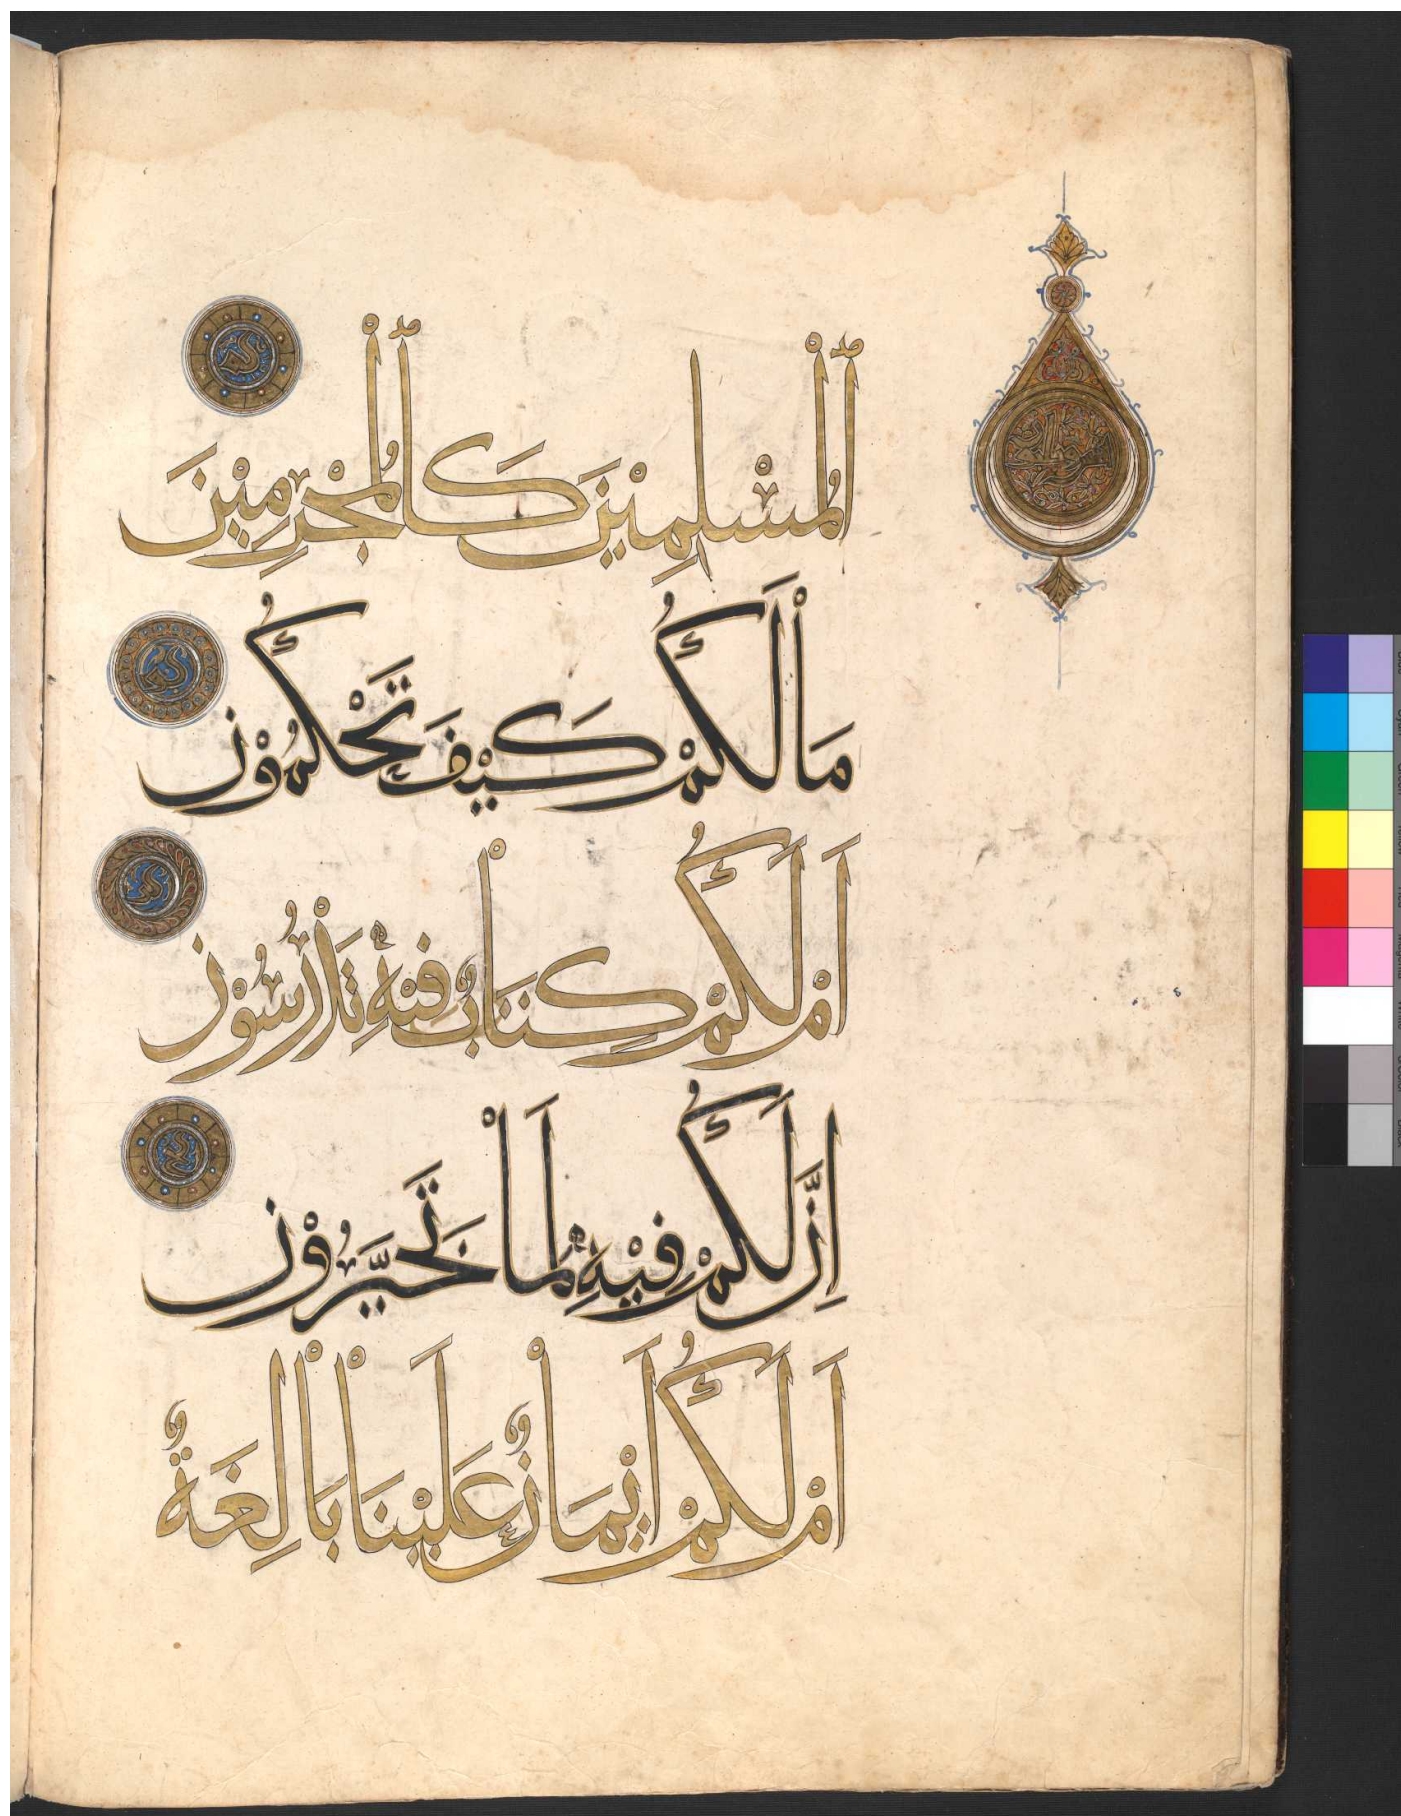 ٱلْمُسْلِمِيْنَ كَٱلْمُجْرِمِيْنَ
مَاْ لَكُمْ كَيْفَ تَحْكُمُوْن
اَمْ لَكُمْ كِتَاْبٌ فِيْهِ تَدْرُسُوْن
اِنَّ لَكُمْ فِيْهِ لَمَاْ تَخَيَّرُوْن
اَمْ لَكُمْ اَيْمَاْنٌ عَلَيْنَاْ بَاْلِغَةٌ